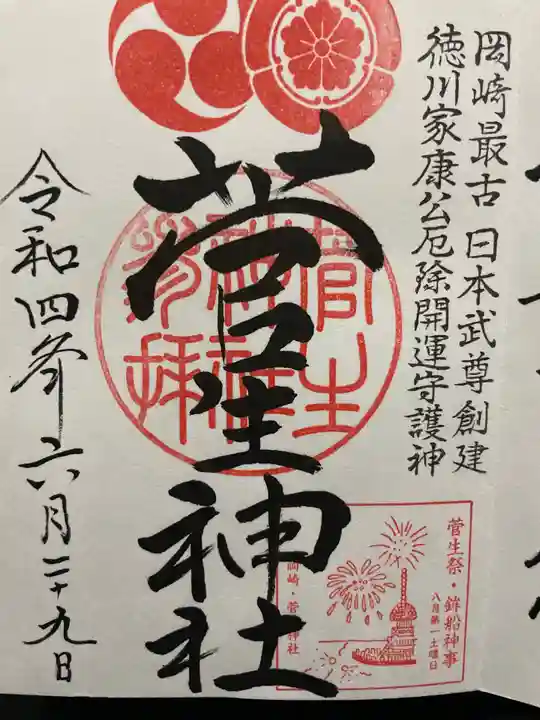 岡崎最古 日本武尊創建
徳川家康公厄除開運守護神
菅生神社
菅生
神社
参拝
令和四年六月二十九日
菅生祭・鉾船神事
八月第一土曜日
岡崎・菅生神社